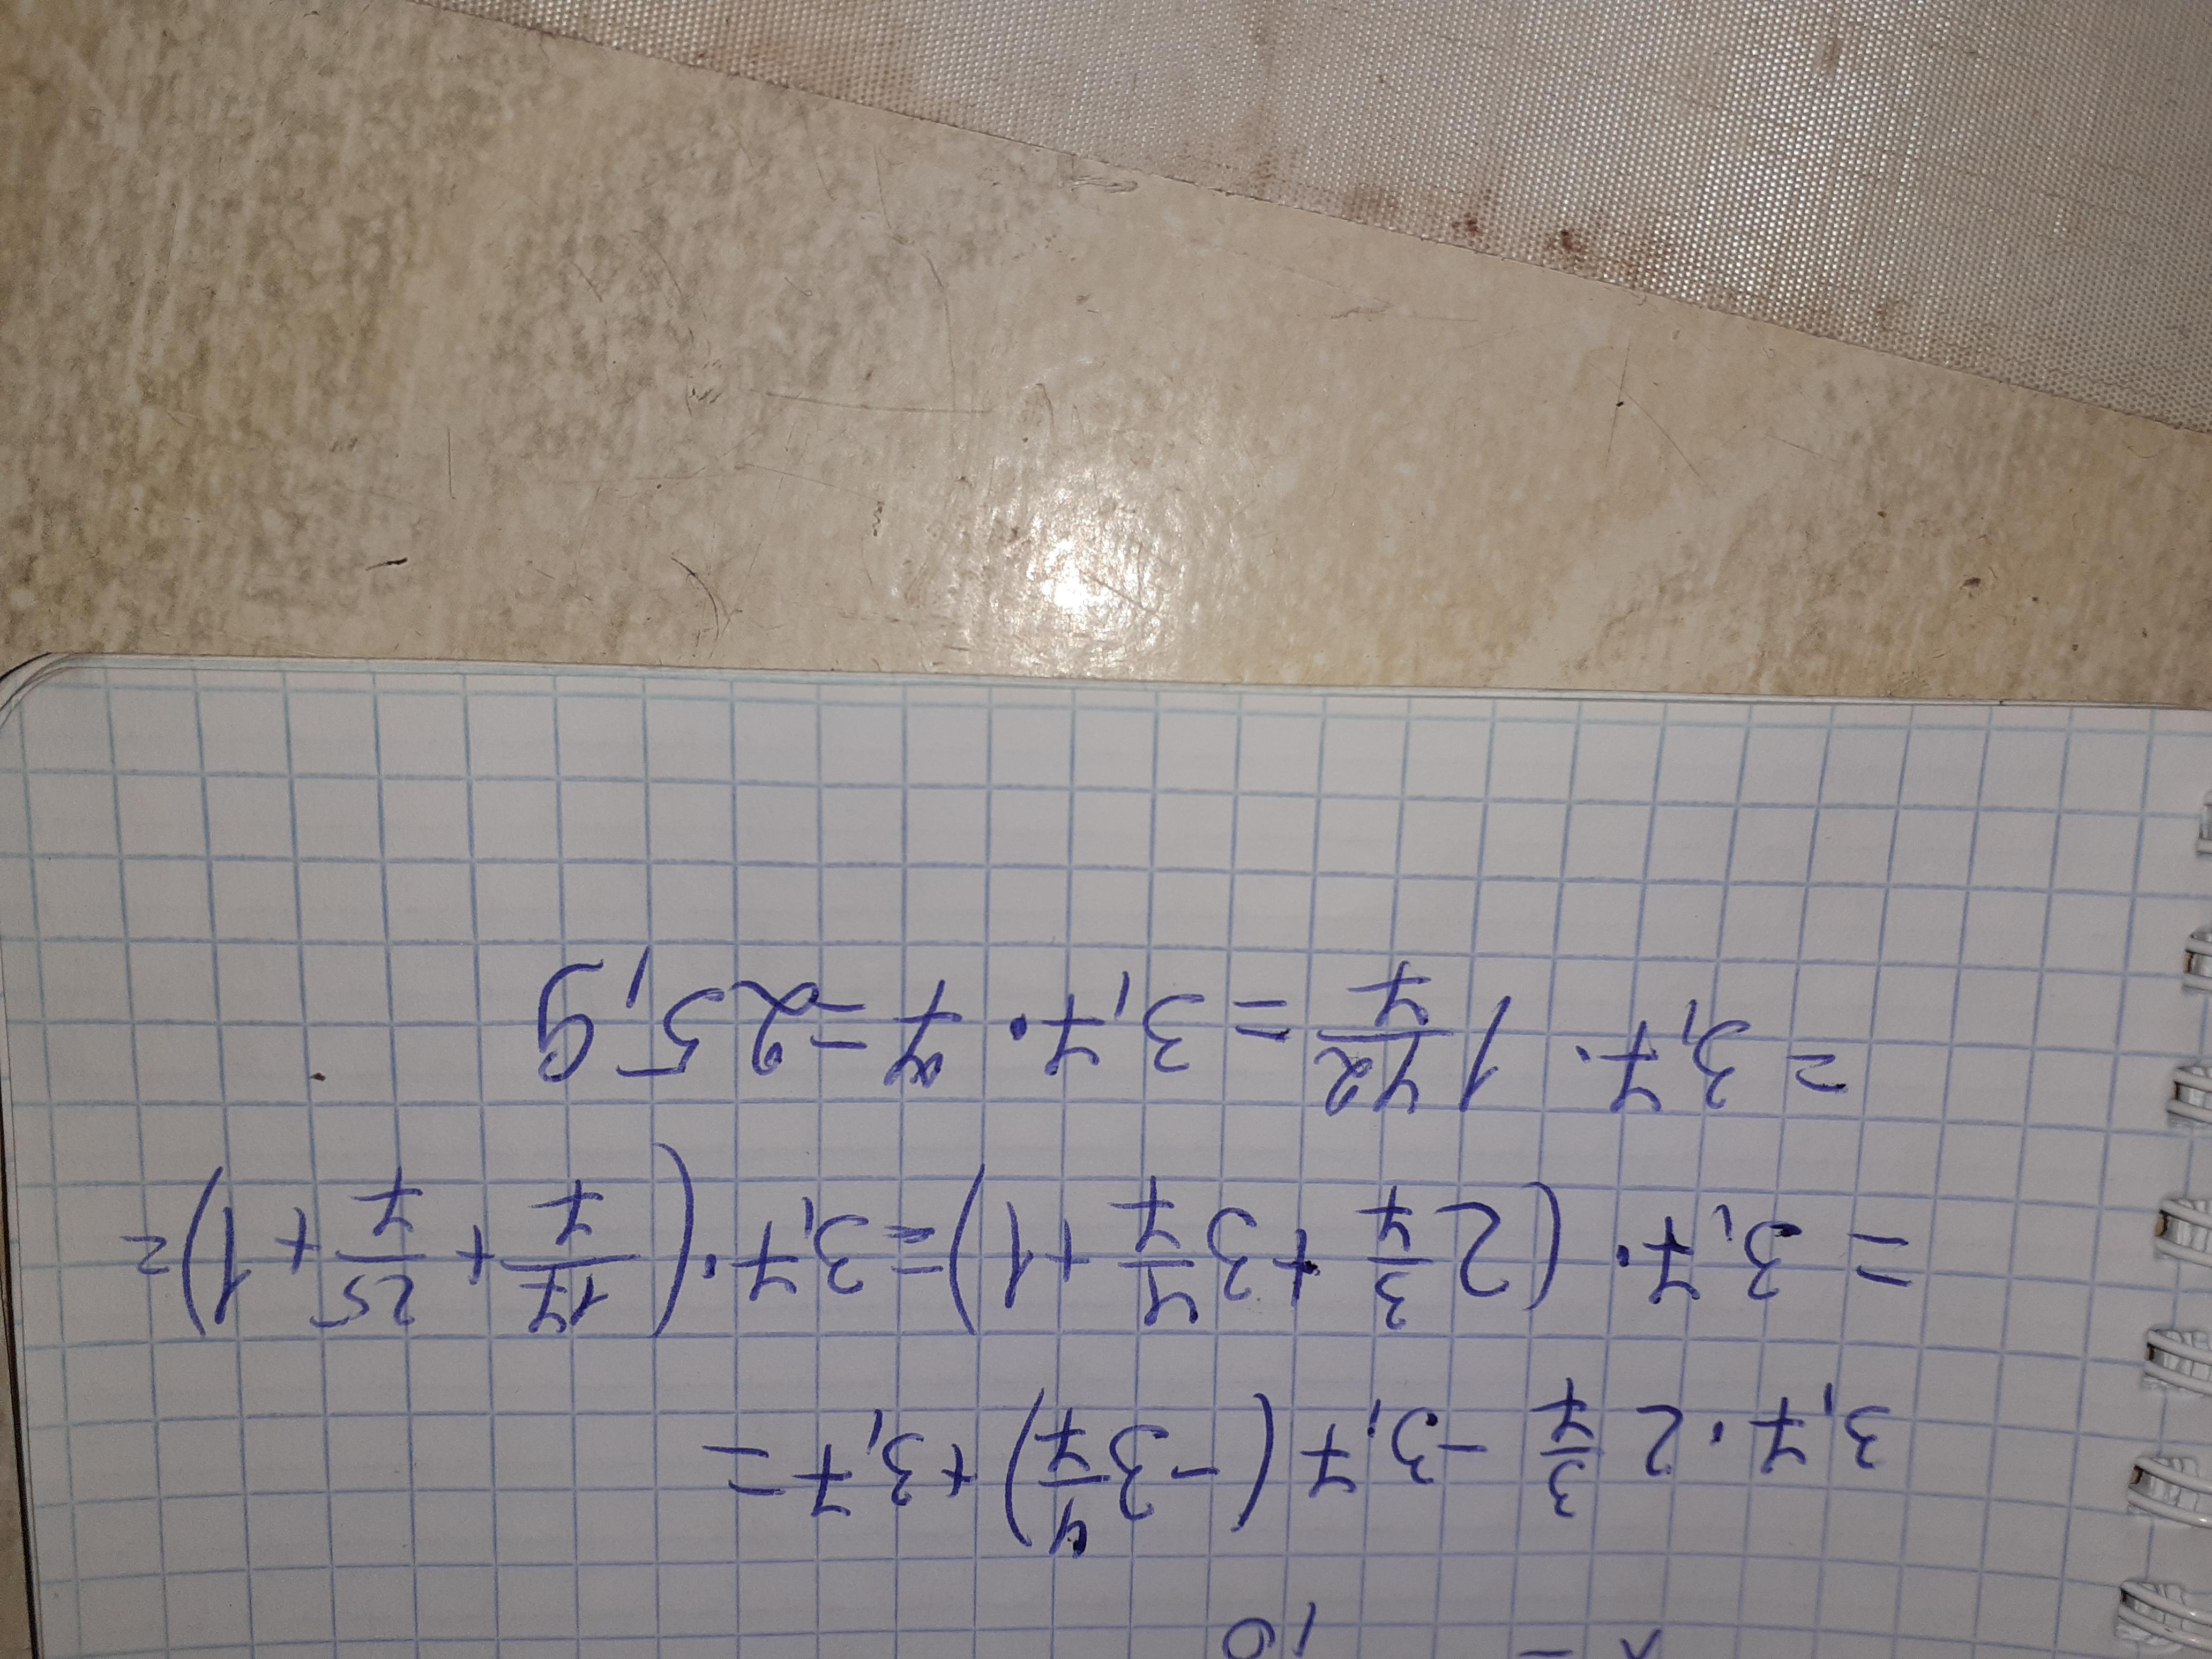 3,7 · 2 3/7 - 3,7 (-3 4/7) + 3,7 =
= 3,7 · (2 3/7 + 3 4/7 + 1) = 3,7 · (17/7 + 25/7 + 1) =
= 3,7 · 1 42/7 = 3,7 · 7 = 25,9